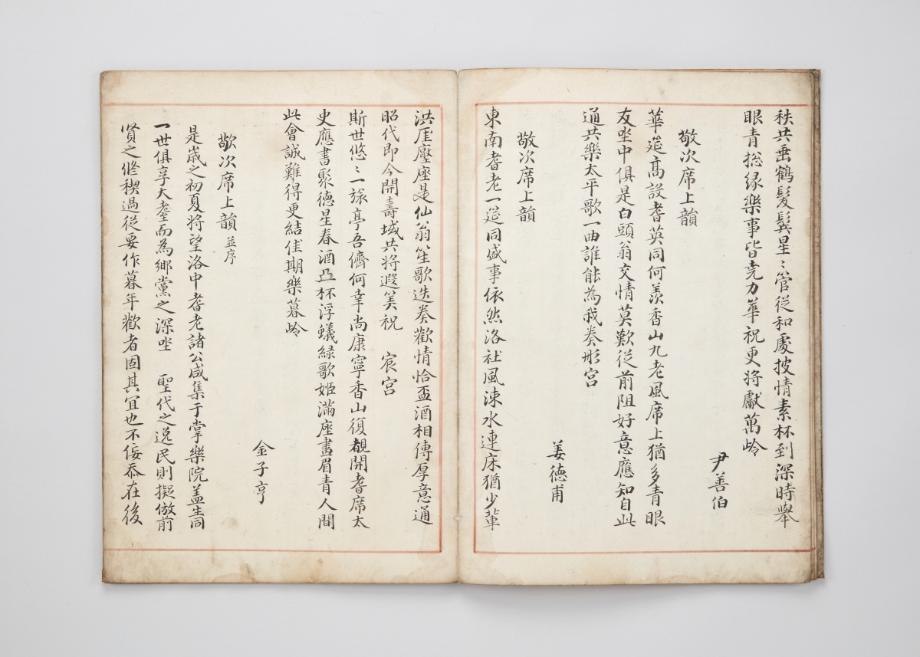 秩共垂鶴髮鬂星〻管從和處披情素杯到深時擧
眼青㧾縁樂事皆堯力華祝更將獻萬岭
尹善伯
敬次席上韻
華筵髙設耆英同何羡香山九老風席上猶多青眼
友坐中俱是白頭翁交情莫歎從前阻好意應知自此
通共樂太平歌一曲誰能為我奏彤宫
姜德甫
敬次席上韻
東南耆老一筵同盛事依然洛社風涑水連床猶少輩
洪厓壓座是仙翁笙歌迭奏歡情恰盃酒相傳厚意通
昭代即今開壽域共將遐筭祝 宸宫
斯世悠〻一旅亭吾儕何幸尚康寧香山復覩開耆席太
史應書聚德星春酒亞杯浮蟻緑歌姬滿座畫眉青人間
此會誠難得更結佳期樂暮岭
金子亨
敬次席上韻 並序
是歳之初夏將望洛中耆老諸公咸集于掌樂院盖生同
一世俱享大耋而為鄉黨之深 聖代之逸民則擬倣前
賢之修稧過從要作暮年歡者固其冝也不侫忝在後